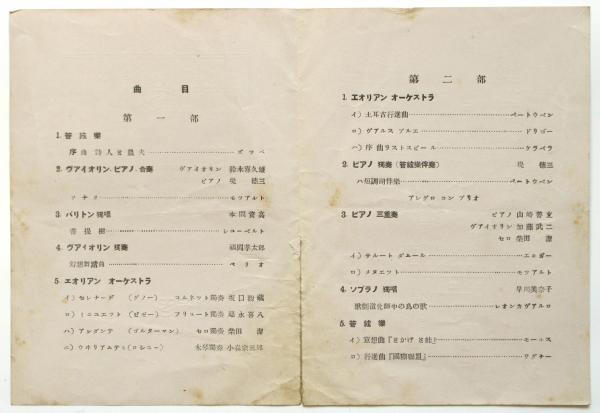 曲目
第一部
1. 管絃樂
序曲 詩人と農夫 ズッペ
2. ヴアイオリン、ピアノ 合奏 ヴアイオリン 鈴木喜久雄
ピアノ 堤 徳三
ソナタ モツアルト
3. バリトン 獨唱 本間資高
菩提樹 シユーベルト
4. ヴアイオリン 獨奏 福岡孝太郎
幻想舞踏曲 ベリオ
5 エオリアン オーケストラ
イ) セレナーデ (グノー) コルネツト獨奏 坂口
ロ) ミニユエツト (ビゼー) フリユート獨奏 永喜八
ハ) アンダンテ (ゴルターマン) セロ獨奏 柴田 潔
ニ) ウヰリアムテル (ロシニー) 木琴獨奏 小森宗三郎
第二部
1. エオリアン オーケストラ
イ) 土耳古行進曲 ベートウベン
ロ) ヴアルス ブルエ ドリゴー
ハ) 序曲 ラストスピール ケラベラ
2. ピアノ 獨奏 (管絃樂伴奏) 堤 徳三
ハ短調司伴樂 ベートウベン
アレグロ コン ブリオ
3. ピアノ 三重奏 ピアノ 山崎普立
ヴアイオリン 加藤武二
セロ 柴田 潔
イ) サルート ダムール エルガー
ロ) メヌエツト モツアルト
4. ソプラノ 獨唱 早川美奈子
歌劇道化師中の鳥の歌 レオンカヴアルロ
5. 管絃樂
イ) 冥想曲『まかげさ蛙』
ロ) 行進曲『國際聯盟』 ワグナー